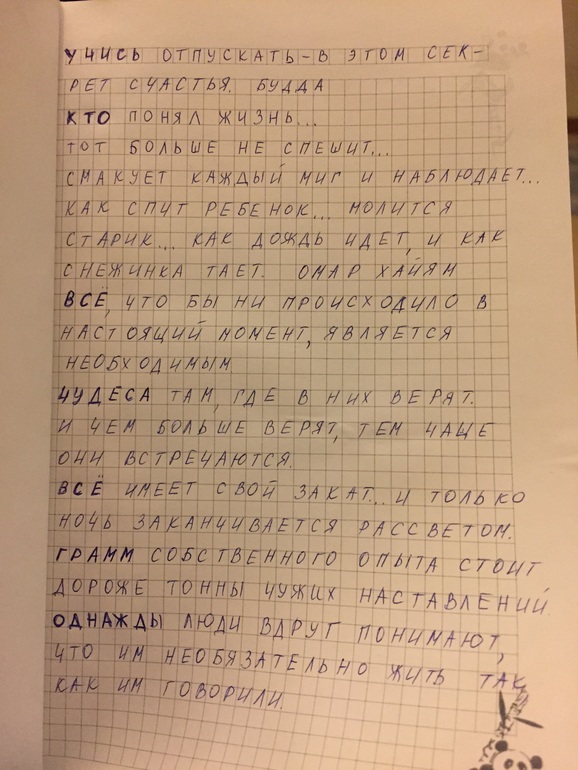 УЧИСЬ ОТПУСКАТЬ - В ЭТОМ СЕК-
РЕТ СЧАСТЬЯ. БУДДА
КТО ПОНЯЛ ЖИЗНЬ...
ТОТ БОЛЬШЕ НЕ СПЕШИТ...
СМАКУЕТ КАЖДЫЙ МИГ И НАБЛЮДАЕТ...
КАК СПИТ РЕБЕНОК... МОЛИТСЯ
СТАРИК... КАК ДОЖДЬ ИДЕТ, И КАК
СНЕЖИНКА ТАЕТ. ОМАР ХАЙЯМ
ВСЁ, ЧТО БЫ НИ ПРОИСХОДИЛО В
НАСТОЯЩИЙ МОМЕНТ, ЯВЛЯЕТСЯ
НЕОБХОДИМЫМ
ЧУДЕСА ТАМ, ГДЕ В НИХ ВЕРЯТ.
И ЧЕМ БОЛЬШЕ ВЕРЯТ, ТЕМ ЧАЩЕ
ОНИ ВСТРЕЧАЮТСЯ.
ВСЁ ИМЕЕТ СВОЙ ЗАКАТ... И ТОЛЬКО
НОЧЬ ЗАКАНЧИВАЕТСЯ РАССВЕТОМ.
ГРАММ СОБСТВЕННОГО ОПЫТА СТОИТ
ДОРОЖЕ ТОННЫ ЧУЖИХ НАСТАВЛЕНИЙ
ОДНАЖДЫ ЛЮДИ ВДРУГ ПОНИМАЮТ,
ЧТО ИМ НЕОБЯЗАТЕЛЬНО ЖИТЬ ТАК,
КАК ИМ ГОВОРИЛИ.